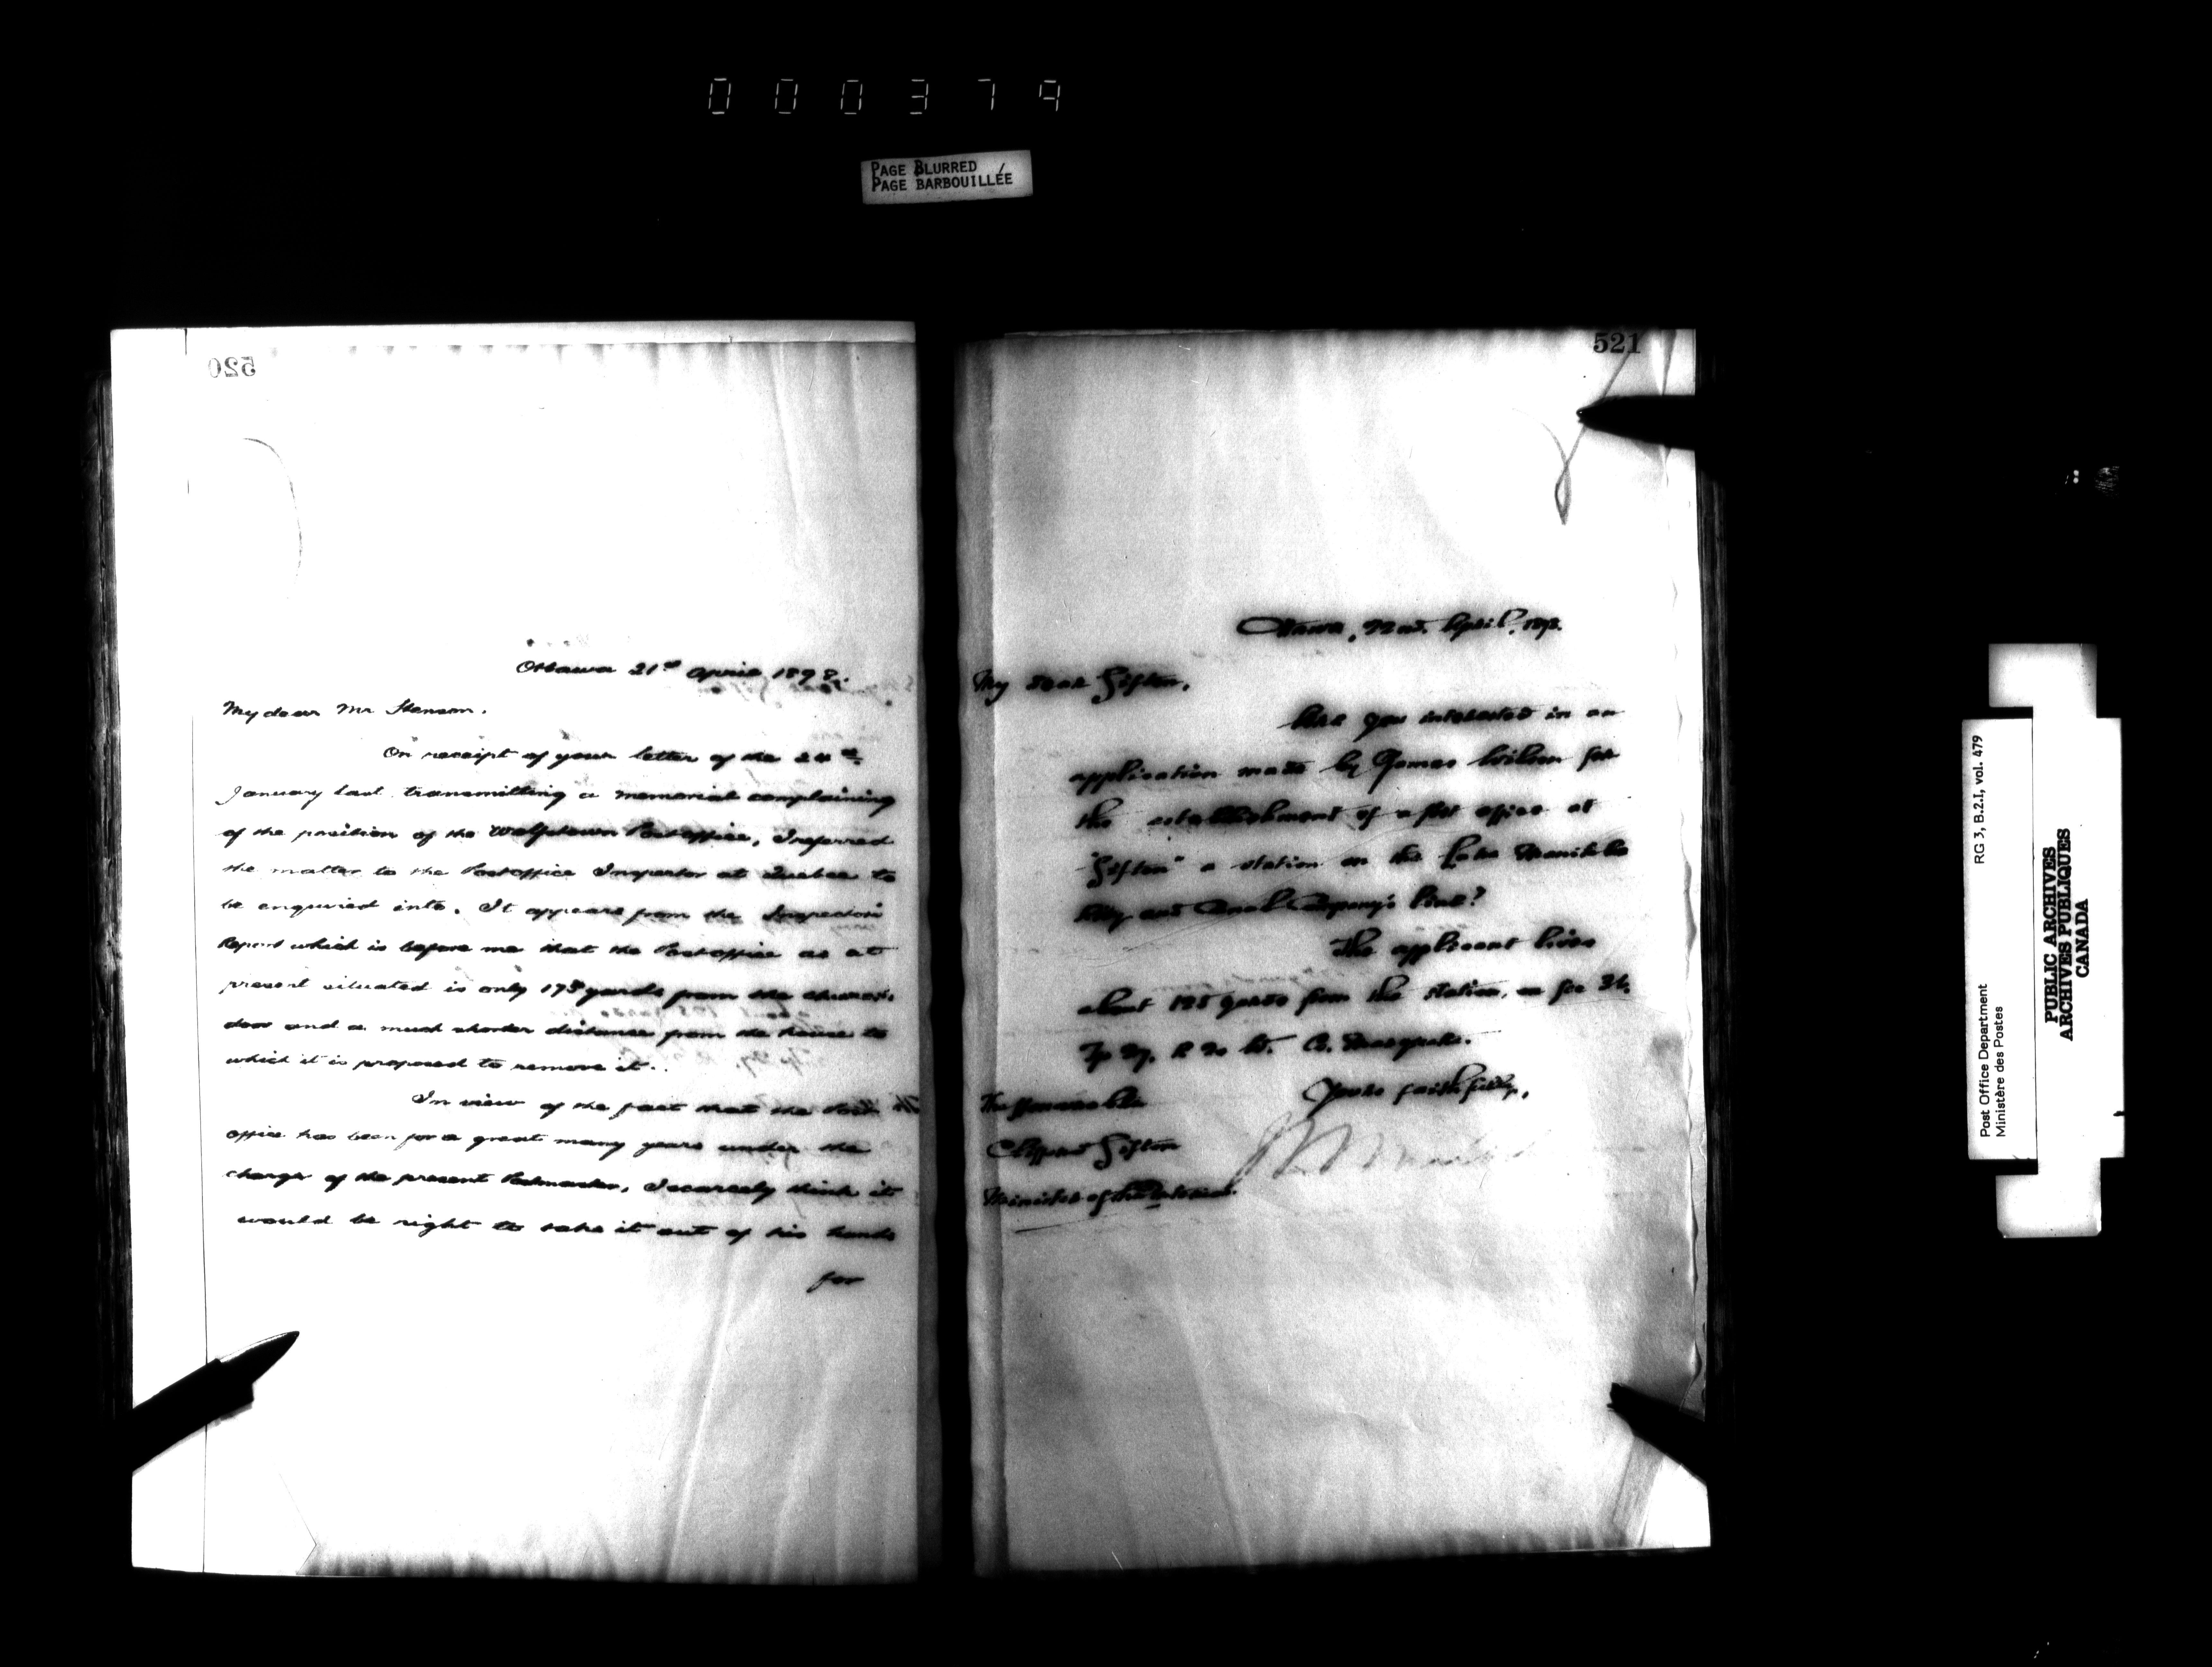 000379
PAGE BLURRED
PAGE BARBOUILLÉE
520
Ottawa 21st April 1898.
My dear Mr Stenson.
On receipt of your letter of the 24th
January last transmitting a memorial complaining
of the position of the Wolfestown Postoffice, I referred
the matter to the Postoffice Inspector at Quebec to
be enquired into. It appears from the Inspectors
Report which is before me that the Postoffice as at
present situated is only 175 yards from the church
door and a much shorter distance from the house to
which it is proposed to remove it.
In view of the fact that the Post
office has been for a great many years under the
charge of the present Postmaster, I scarcely think it
would be right to take it out of his hands
for
521
Ottawa, 22nd. April, 1898.
My dear Sifton,
Are you interested in an
application made by James Wilson for
the establishment of a post office at
"Sifton" a station on the Lake Manitoba
Rlly and Canal Company's line?
The applicant lives
about 125 yards from the station, on sec 31.
Tp 27. R 20 W.
Yours faithfully,
The Honourable
Clifford Sifton
Minister of the Interior.
Post Office Department
Ministère des Postes
RG 3, B.2.I, vol. 479
PUBLIC ARCHIVES
ARCHIVES PUBLIQUES
CANADA